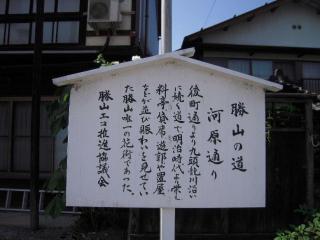 勝山の道
河原通り
後町通りより九頭龍川沿い
に続く道で明治時代より栄え
料亭、貸席、遊郭や置屋
などが並び賑わいを見せてい
た勝山唯一の花街であった。
勝山エコ推進協議会